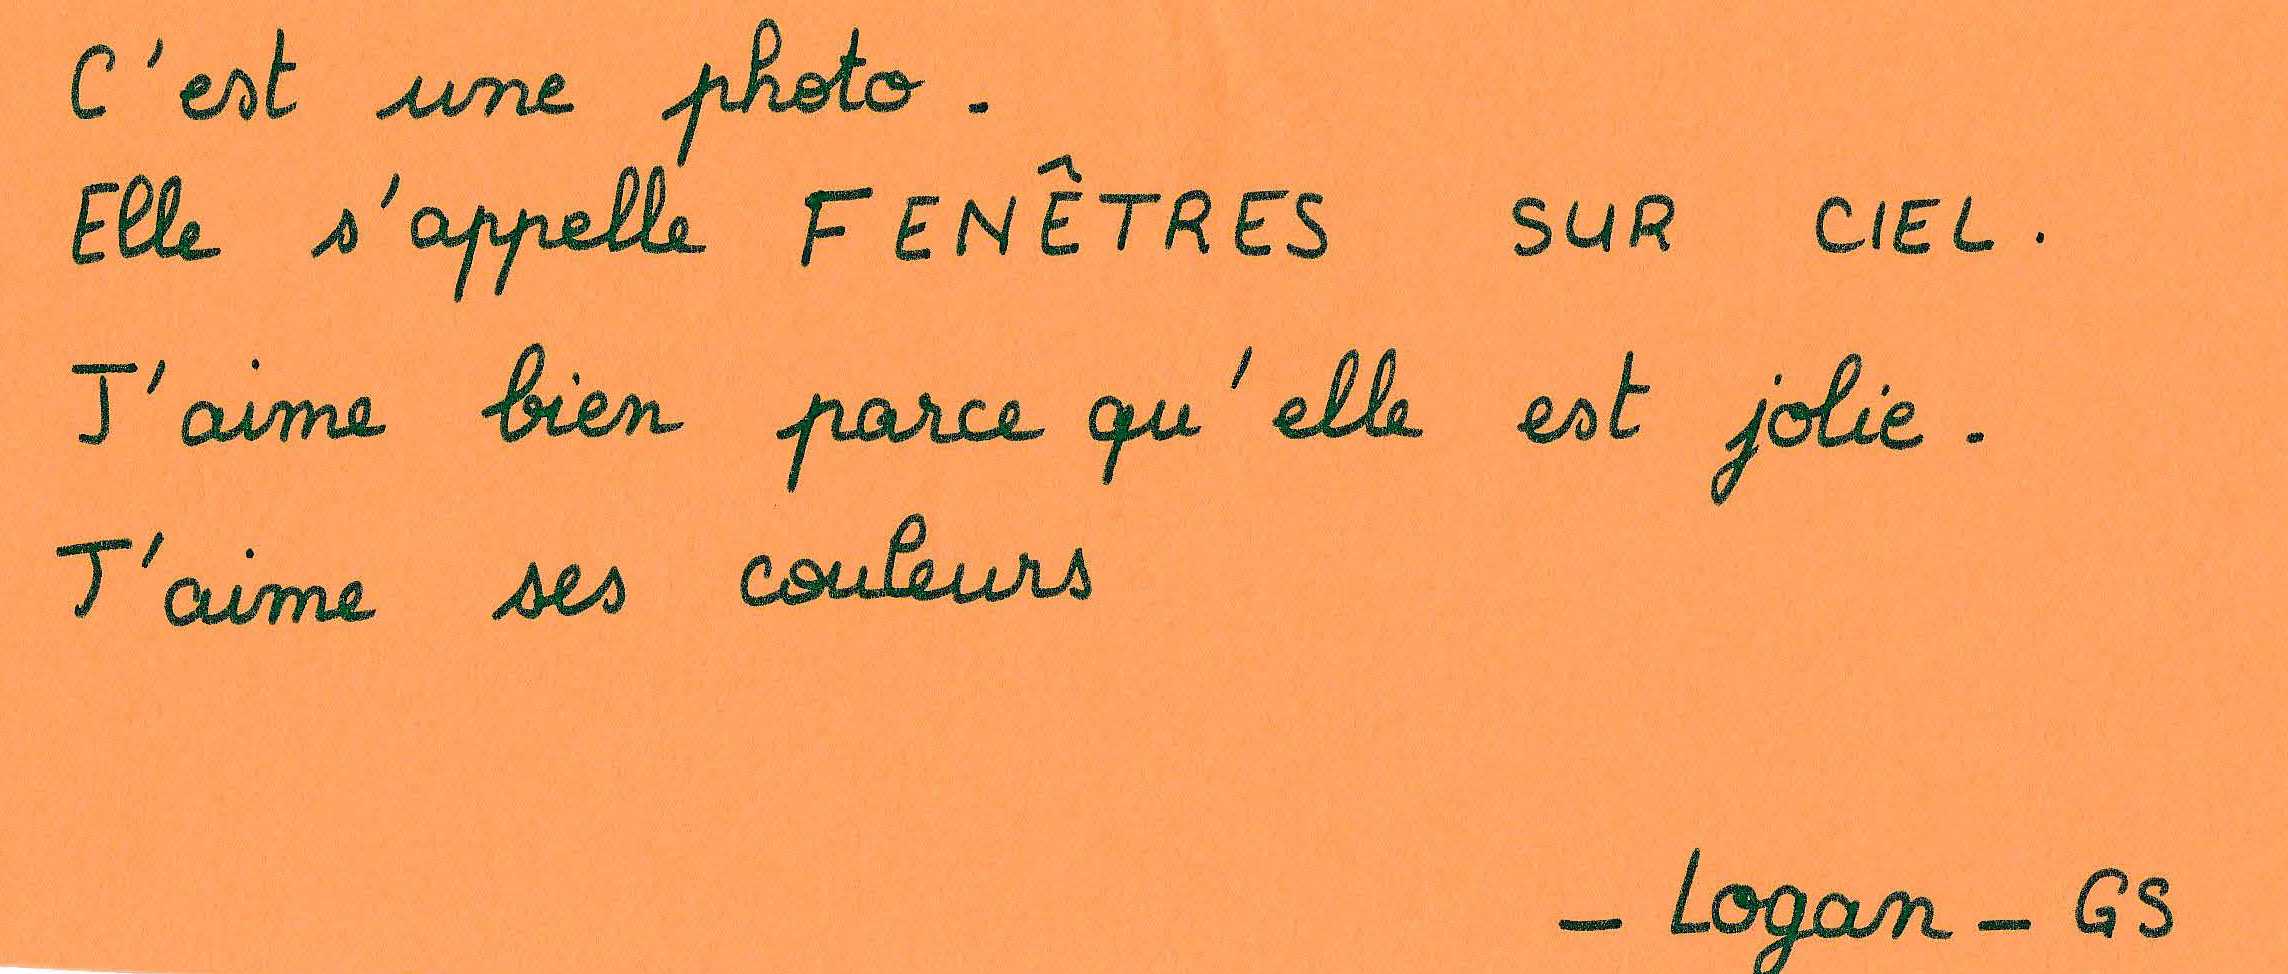 C'est une photo.
Elle s'appelle FENÊTRES SUR CIEL.
J'aime bien parce qu'elle est jolie.
J'aime ses couleurs
– Logan – GS